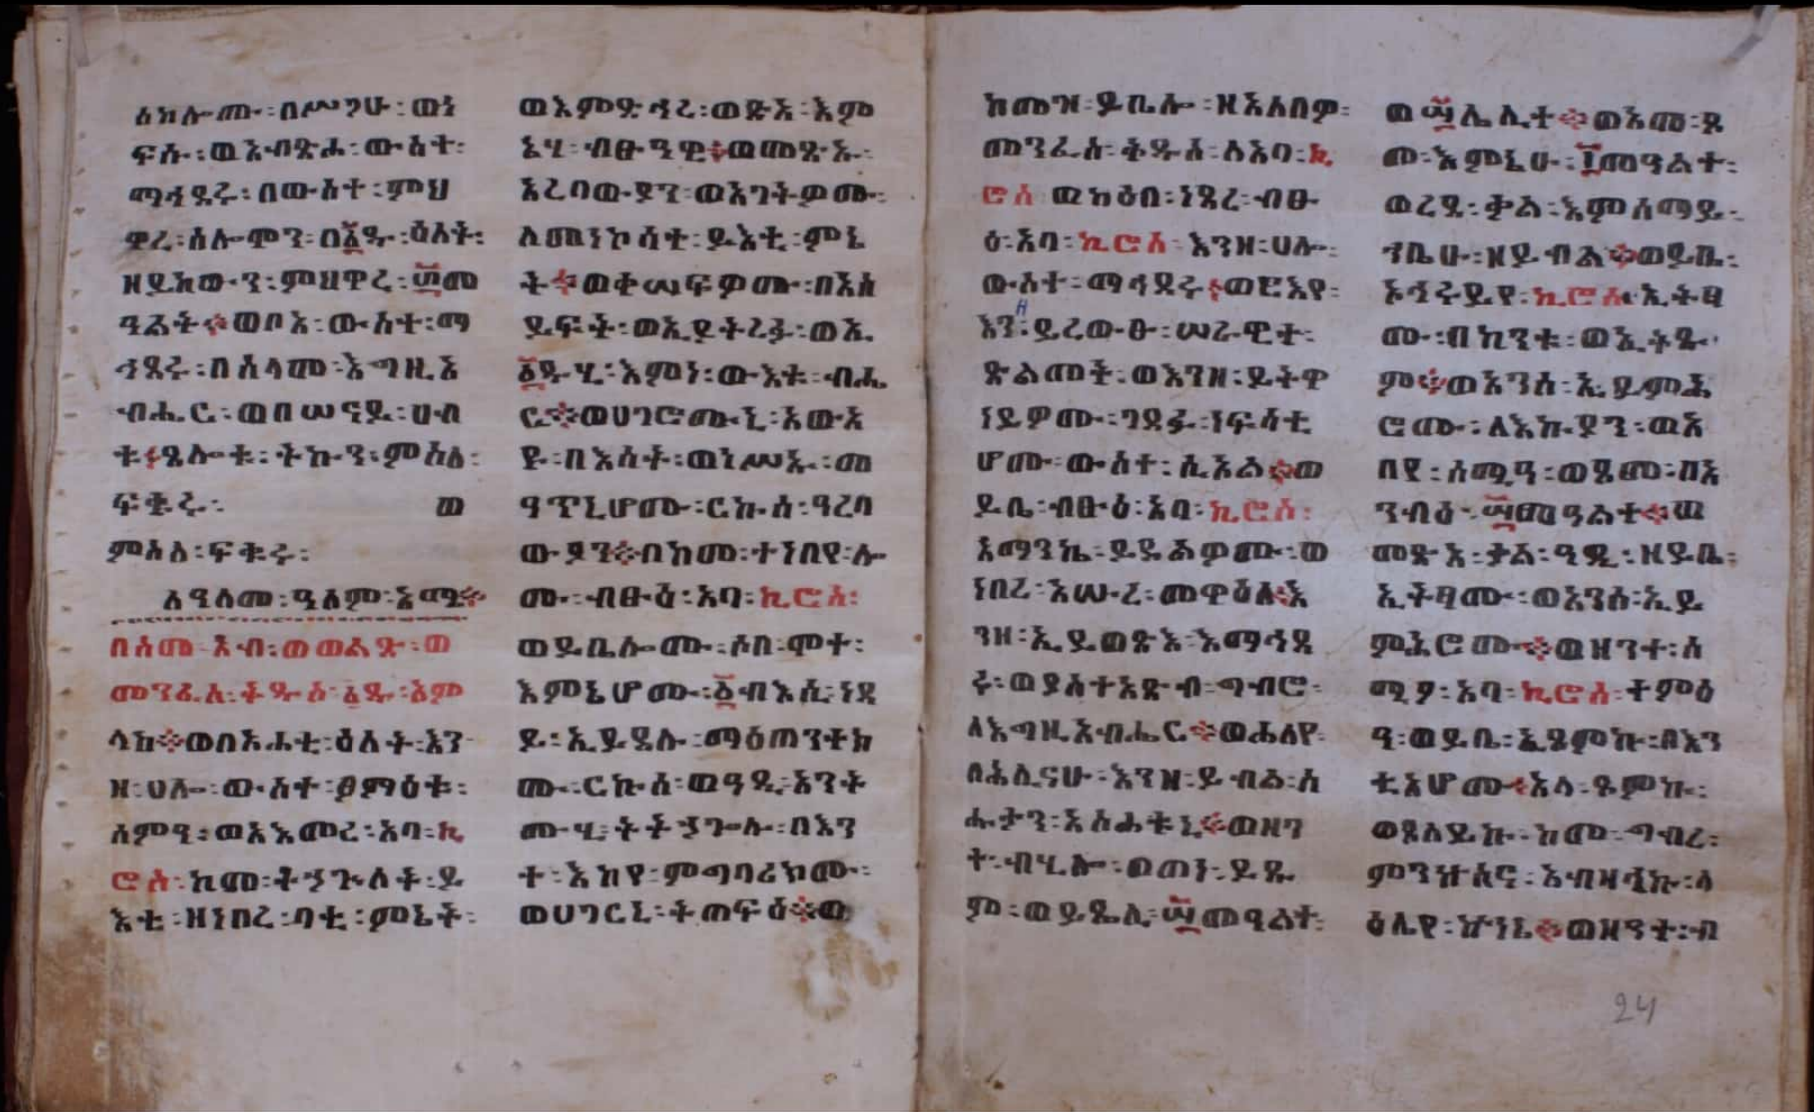 አክሎሙ፡በሥጋሁ፡ወነ
ፍሱ፡ወአብጽሐ፡ውስተ፡
ማኅደሩ፡በውስተ፡ምህ
ዋረ፡ሰሎሞን፡በ፩ዱ፡ዕለት፡
ዘይከውን፡ምህዋረ፡፴መ
ዓልት፨ወቦአ፡ውስተ፡ማ
ኅደሩ፡በሰላመ፡እግዚአ
ብሔር፡ወበሠናይ፡ሀብ
ቱ፡ጸሎቱ፡ትኩን፡ምስለ፡
ፍቁሩ፡ ወ
ምስለ፡ፍቁሩ፡
ለዓለመ፡ዓለም፡አሜን፨
በስመ፡አብ፡ወወልድ፡ወ
መንፈስ፡ቅዱስ፡፩ዱ፡አም
ላክ፨ወበአሐቲ፡ዕለት፡እን
ዘ፡ሀሎ፡ውስተ፡ፀማዕቱ፡
ሰምዓ፡ወአእመረ፡አባ፡ኪ
ሮስ፡ከመ፡ትኄጕለት፡ይ
እቲ፡ዘነበረ፡ባቲ፡ምኔት፡
ወእምድኅረ፡ወጽአ፡እም
ኔሃ፡ብፁዓዊ፨ወመጽኡ፡
አረባውያን፡ወአኀትዎሙ፡
ለመነኮሳተ፡ይእቲ፡ምኔ
ት፨ወቀሠፍዎሙ፡በአስ
ይፍት፡ወኢያትረፉ፡ወኢ
፩ዱሂ፡እምነ፡ውእቱ፡ብሔ
ር፨ወሀገሮሙኒ፡አውአ
ዩ፡በእሳት፡ወነሥኡ፡መ
ዓጥኒሆሙ፡ርኩሰ፡ዓረባ
ውያን፨በከመ፡ተነበየ፡ሎ
ሙ፡ብፁዕ፡አባ፡ኪሮስ፡
ወይቤሎሙ፡ሶበ፡ሞተ፡
እምኔሆሙ፡፩ብእሲ፡ነዳ
ይ፡ኢይጼሉ፡ማዕጠንተክ
ሙ፡ርኩሰ፡ወዓዲ፡አንት
ሙሂ፡ትትኃጐሉ፡በእን
ተ፡እከየ፡ምግባሪክሙ፡
ወሀገርኒ፡ትጠፍዕ፨ወ
ከመዝ፡ይቤሎ፡ዘአለበዎ፡
መንፈስ፡ቅዱስ፡ለአባ፡ኪ
ሮስ፡ወካዕበ፡ነጸረ፡ብፁ
ዕ፡አባ፡ኪሮስ፡እንዘ፡ሀሎ፡
ውስተ፡ማኅደሩ፡ወርእየ፡
እንዘ፡ይረውፁ፡ሠራዊተ፡
ጽልመት፡ወእንዘ፡ይትዋ
ነይዎሙ፡ገደፉ፡ነፍሳቲ
ሆሙ፡ውስተ፡ሲኦል፨ወ
ይቤ፡ብፁዕ፡አባ፡ኪሮስ፡
አማንኬ፡ይደልዎሙ፡ወ
ነበረ፡አሠረ፡መዋዕለ፡እ
ንዘ፡ኢይወጽእ፡እማኅደ
ሩ፡ወያስተአጽብ፡ግብሮ፡
ለእግዚአብሔር፨ወሐለየ፡
ለሕሊናሁ፡እንዘ፡ይብል፡ስ
ሑታን፡አስሐቱኒ፨ወዘን
ተ፡ብሂሎ፡ወጠነ፡ይጹ
ም፡ወይጼሊ፡፵መዓልተ፡
ወ፵ሌሊተ፨ወእመ፡ጾ
መ፡እምኔሁ፡፲መዓልተ፡
ወረደ፡ቃል፡እምሰማይ፡
ንቤሁ፡ዘይብል፨ወይቤ፡
ኦኅሩይየ፡ኪሮስ፡ኢትፃ
ሙ፡በከንቱ፡ወኢትጹ
ም፨ወአንሰ፡ኢይምሕ
ሮሙ፡ለእኩያን፡ወአ
በየ፡ሰሚዓ፡ወጾመ፡በእ
ንብዕ፡፵መዓልተ፨ወ
መጽአ፡ቃል፡ዓዲ፡ዘይቤ፡
ኢትፃሙ፡ወአንሰ፡ኢይ
ምሕሮሙ፨ወዘንተ፡ሰ
ሚዖ፡አባ፡ኪሮስ፡ተምዕ
ዓ፡ወይቤ፡ኢጾምኩ፡በእን
ቲአሆሙ፡አላ፡ጾምኩ፡
ወጸለይኩ፡ከመ፡ግብረ፡
ምንዝእሮ፡አብዛኅኩ፡ላ
ዕሌየ፡ኵነኔ፨ወዘንተ፡ብ
24